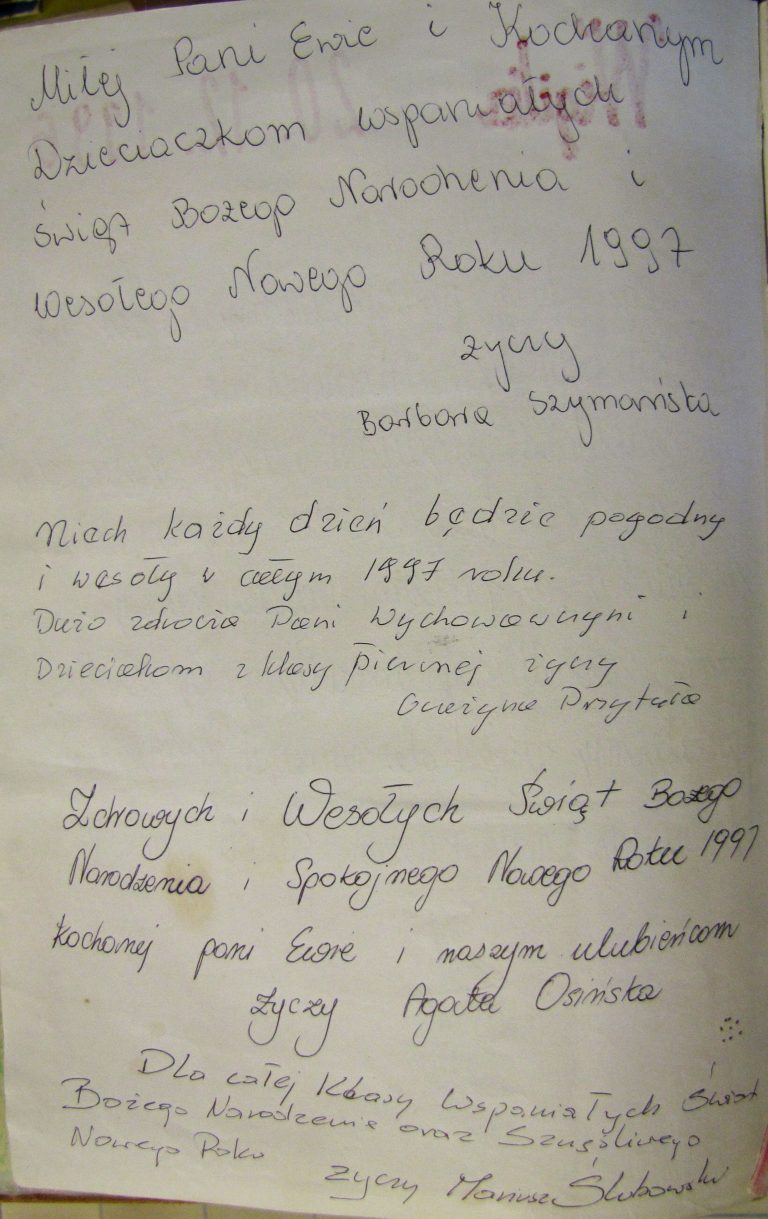 Miłej Pani Ewie i Kochanym
Dzieciaczkom wspaniałych
świąt Bożego Narodzenia i
Wesołego Nowego Roku 1997
życzy
Barbara Szymańska
Niech każdy dzień będzie pogodny
i wesoły w całym 1997 roku.
Dużo zdrowia Pani Wychowawczyni i
Dzieciakom z klasy pierwszej życzy
Grażyna Przytuła
Zdrowych i Wesołych Świąt Bożego
Narodzenia i Spokojnego Nowego Roku 1997
kochanej pani Ewie i naszym ulubieńcom
życzy Agata Osińska
Dla całej Klasy Wspaniałych Świąt
Bożego Narodzenia oraz Szczęśliwego
Nowego Roku
życzy Mariusz Ślubowski